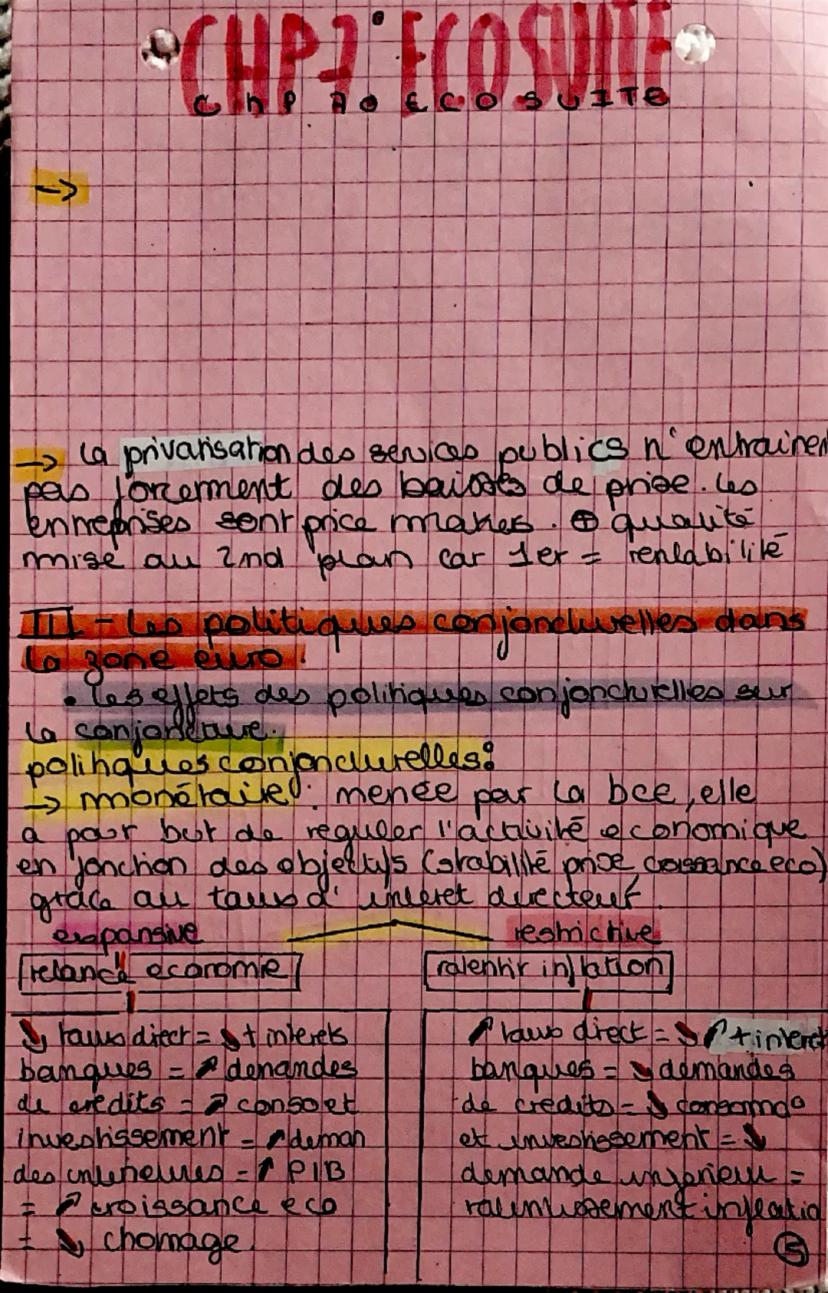 CHP-7 ECO SUITE
CHP 7 ECO SUITE
→
→ la privatisation des services publics n'entrainent
pas forcement des baisses de prise. les
entreprises sont price makes. ⊕ qualité
mise au 2nd plan car 1er = rentabilité
III - les politiques conjoncturelles dans
la zone euro.
• les effets des politiques conjoncturelles sur
la conjoncture.
politiques conjoncturelles:
→ monétaire : menée par la bce, elle
a pour but de réguler l'activité economique
en fonction des objectifs (stabilité prise, croissance eco)
grâce au taux d'interet directeur.
expansive restrictive
relance economie ralentir inflation
↘ taux direct = ↘ t interets
banques = ↗ demandes
de crédits = ↗ conso et
investissement = ↗ deman
des interieures = ↑ PIB
= ↗ croissance eco
= ↘ chomage
↗ taux direct = ↘ ↗ t interet
banques = ↘ demandes
de crédits = ↘
et investissement = ↘
demande =
ralentissement
⑤